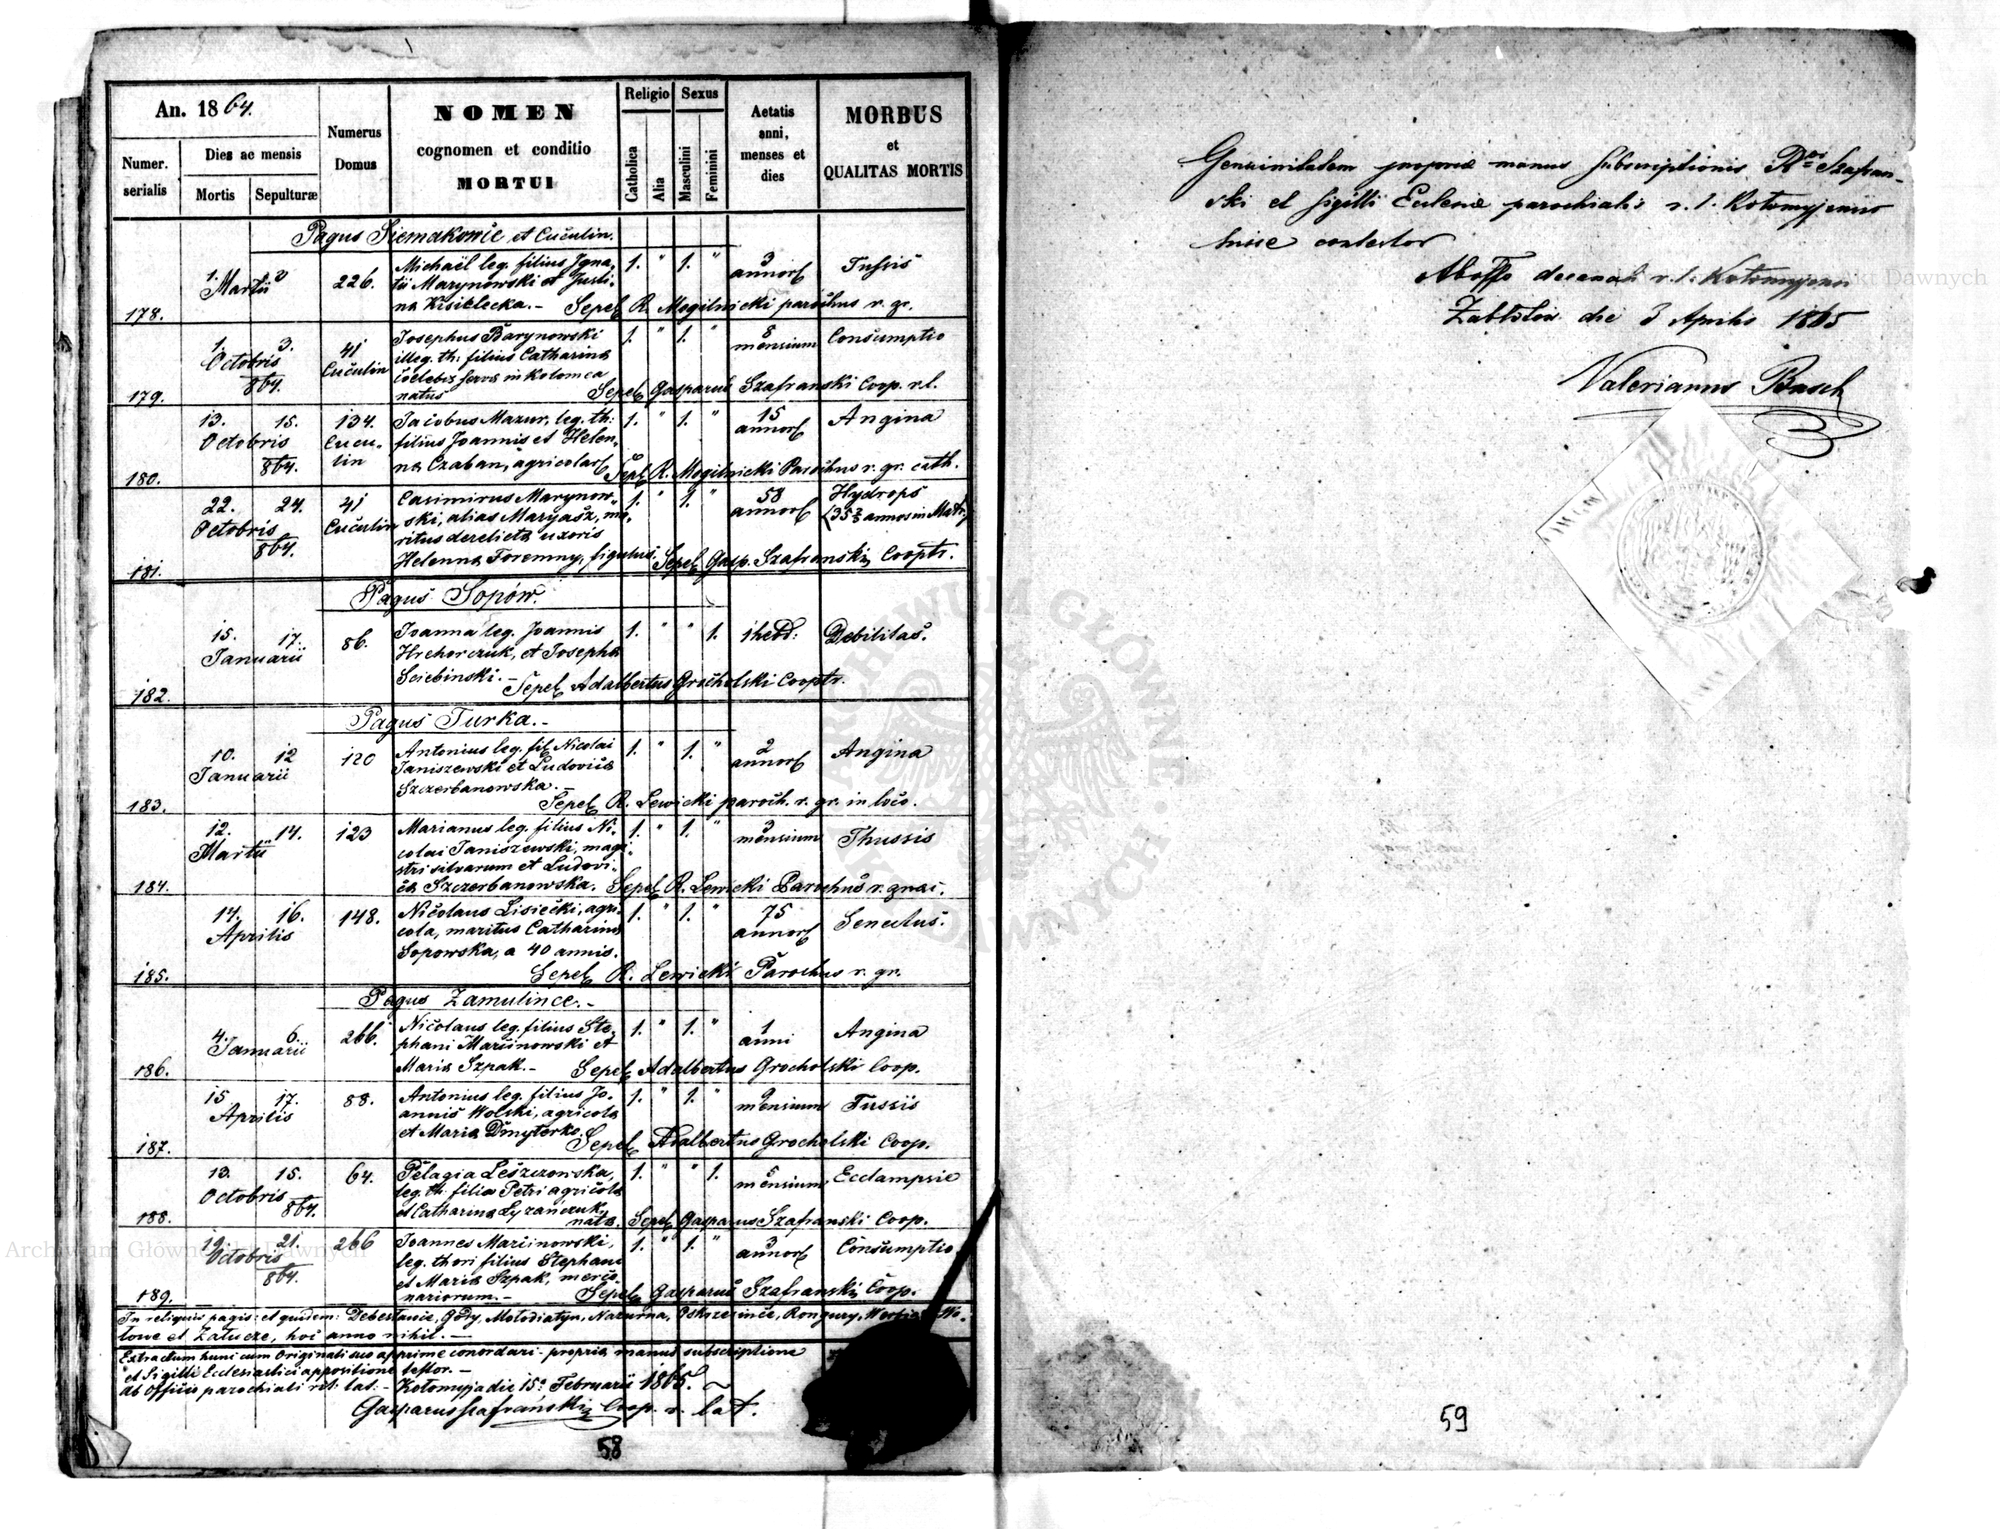 An. 1864.
Numer. serialis
Dies ac mensis
Mortis
Sepulturæ
Numerus Domus
NOMEN
cognomen et conditio
MORTUI
Religio
Catholica
Alia
Sexus
Masculini
Feminini
Aetatis anni, menses et dies
MORBUS
et
QUALITAS MORTIS
Pagus Siemakowce et Cuculin.
178. 1. Martii 226. Michaël leg. filius Igna- 1. " 1. " 3 annor Tussis
tii Marynowski et Justi-
na Kisielecka.- Sepel R. Mogilnicki parochus r. gr.
179. 1. 3. Octobris 864. 41 Cuculin Josephus Barynowski 1. " 1. " 8 mensium Consumptio
illeg. th: filius Catharina
coelebis serva in Kolomea
natus Sepel Gasparus Szafranski Coop. r.l.
180. 13. 15. Octobris 864. 134. Cucu-lin Jacobus Mazur, leg. th: 1. " 1. " 15 annor Angina
filius Joannis et Helen-
na Czaban, agricolar
Sepel R. Mogilnicki Parochus r. gr. cath.
181. 22. 24. Octobris 864. 41 Cuculin Casimirus Marynow- 1. " 1. " 58 annor Hydrops
ski, alias Maryasz, ma-
ritus derelicta uxoris
Helenna Foremny, figulus. Sepel Gasp. Szafranski Cooptr.
Pagus Sopów.
182. 15. 17. Januarii 86. Joanna leg. Joannis 1. " " 1. 1 hebd: Debilitas.
Hrehorczuk, et Josepha
Sciebinski.- Sepel Adalbertus Grocholski Cooptr.
Pagus Turka.-
183. 10. 12 Januarii 120 Antonius leg. fil. Nicolai 1. " 1. " 2 annor Angina
Janiszewski et Ludovica
Szczerbanowska.-
Sepel R. Lewicki paroch. r. gr. in loco.
184. 12. 14. Martii 123 Marianus leg. filius Ni- 1. " 1. " 3 mensium Thussis
colai Janiszewski, magi-
stri silvarum et Ludovi-
ca Szczerbanowska. Sepel R. Lewicki Parochus r. graci.
185. 14. 16. Aprilis 148. Nicolaus Lisiecki, agri- 1. " 1. " 75 annor Senectus.
cola, maritus Catharina
Sopowska, a 40 annis.
Sepel R. Lewicki Parochus r. gr.
Pagus Zamulince.-
186. 4. 6. Januarii 266. Nicolaus leg. filius Ste- 1. " 1. " 1 anni Angina
phani Mariinowski et
Maria Szpak.- Sepel Adalbertus Grocholski Coop.
187. 15 17. Aprilis 88. Antonius leg. filius Jo- 1. " 1. " 9 mensium Tussis
annis Wolski, agricola
et Maria Dmyterko. Sepel Adalbertus Grocholski Coop.
188. 13. 15. Octobris 864. 64. Pelagia Leszczowska, 1. " " 1. 5 mensium Ecclampsie
leg. th. filia Petri agricola
et Catharina Lyzańczuk,
nata. Sepel Gasparus Szafranski Coop.
189. 19. 21. Octobris 864. 266 Joannes Mariinowski, 1. " 1. " 3 annor Consumptio
leg. thori filius Stephani
et Maria Szpak, merce-
nariorum.- Sepel Gasparus Szafranski Coop.
In reliquis pagis: et quidem: Debeslawce, Gody, Molodiatyn, Nazurna, Oskrzesince, Rongury,
towe et Zalucze, hoc anno nihil.-
Extractum hunc cum Originali suo apprime concordari propria manus subscriptione
et Sigilli Ecclesiastici appositione testor.-
Ab Officio parochiali rit: lat:- Kolomyja die 15a Februarii 1865.
Gasparus Szafrański Coop. r. lat.
58
Genuinitatem propriæ manus subscriptionis Rdi Szafran-
ski et sigilli Eccleniæ parochialis r. l. Kolomyjensis
huise contestor
Ab offo decanali r. l. Kolomyjensi
Zabłotów die 3 Aprilis 1865
Valerianus Basch
59
ARCHIWUM GŁÓWNE AKT DAWNYCH
Archiwum Główne Akt Dawnych
Archiwum Główne Akt Dawnych